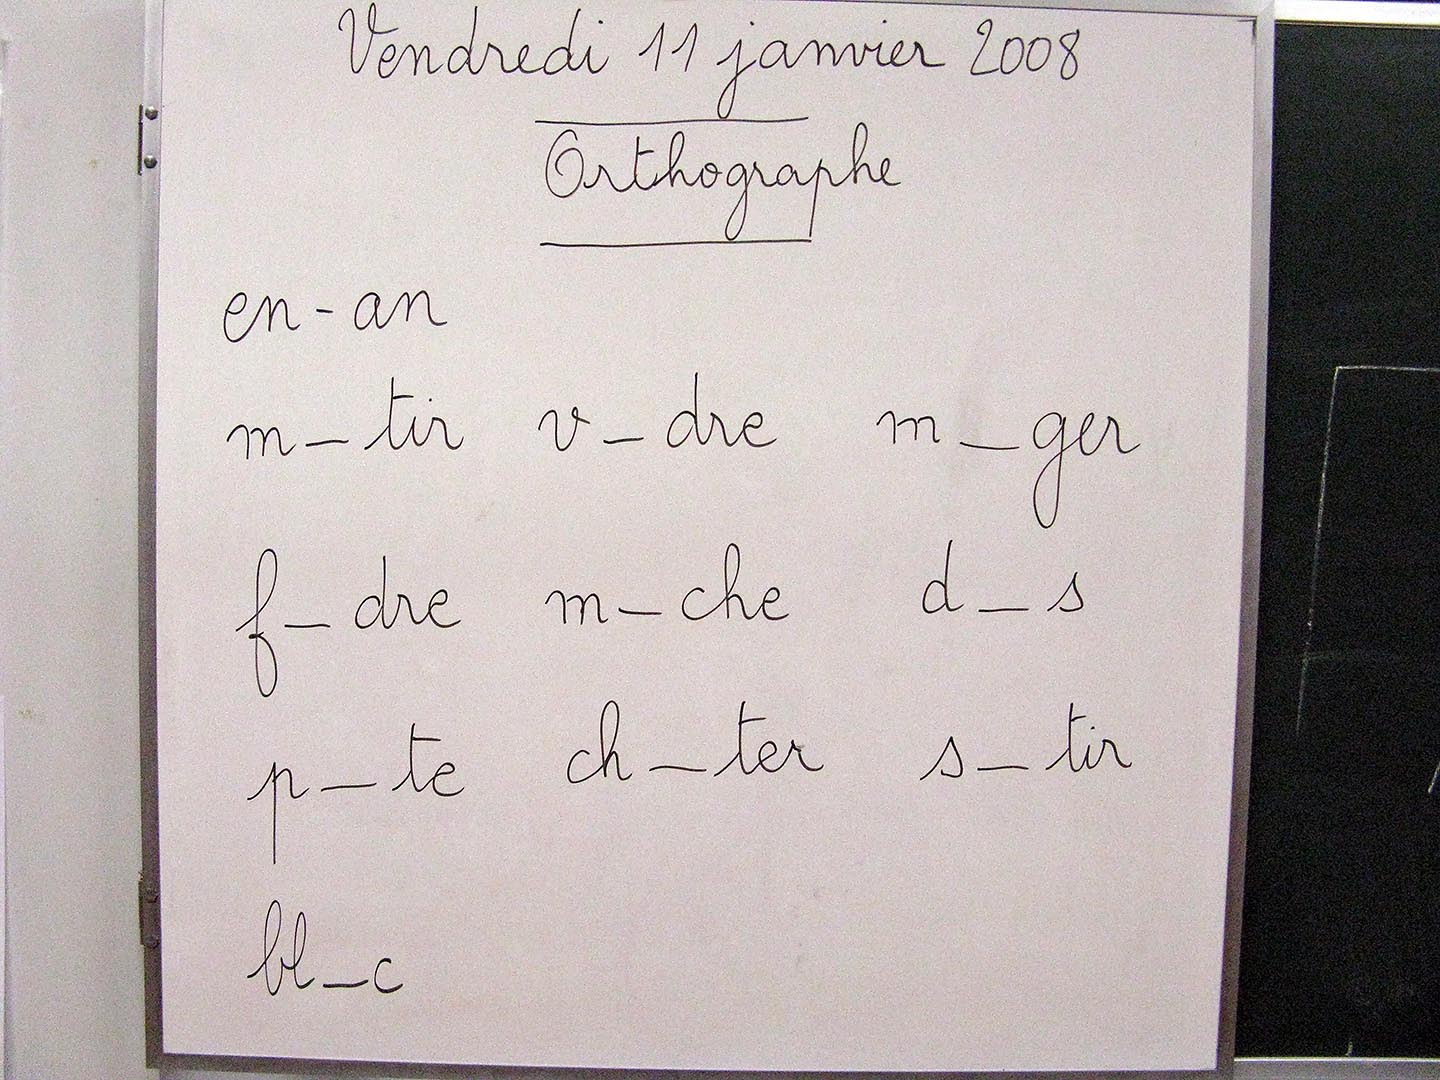 Vendredi 11 janvier 2008
Orthographe
en - an
m_tir v_dre m_ger
f_dre m_che d_s
p_te ch_ter s_tir
bl_c